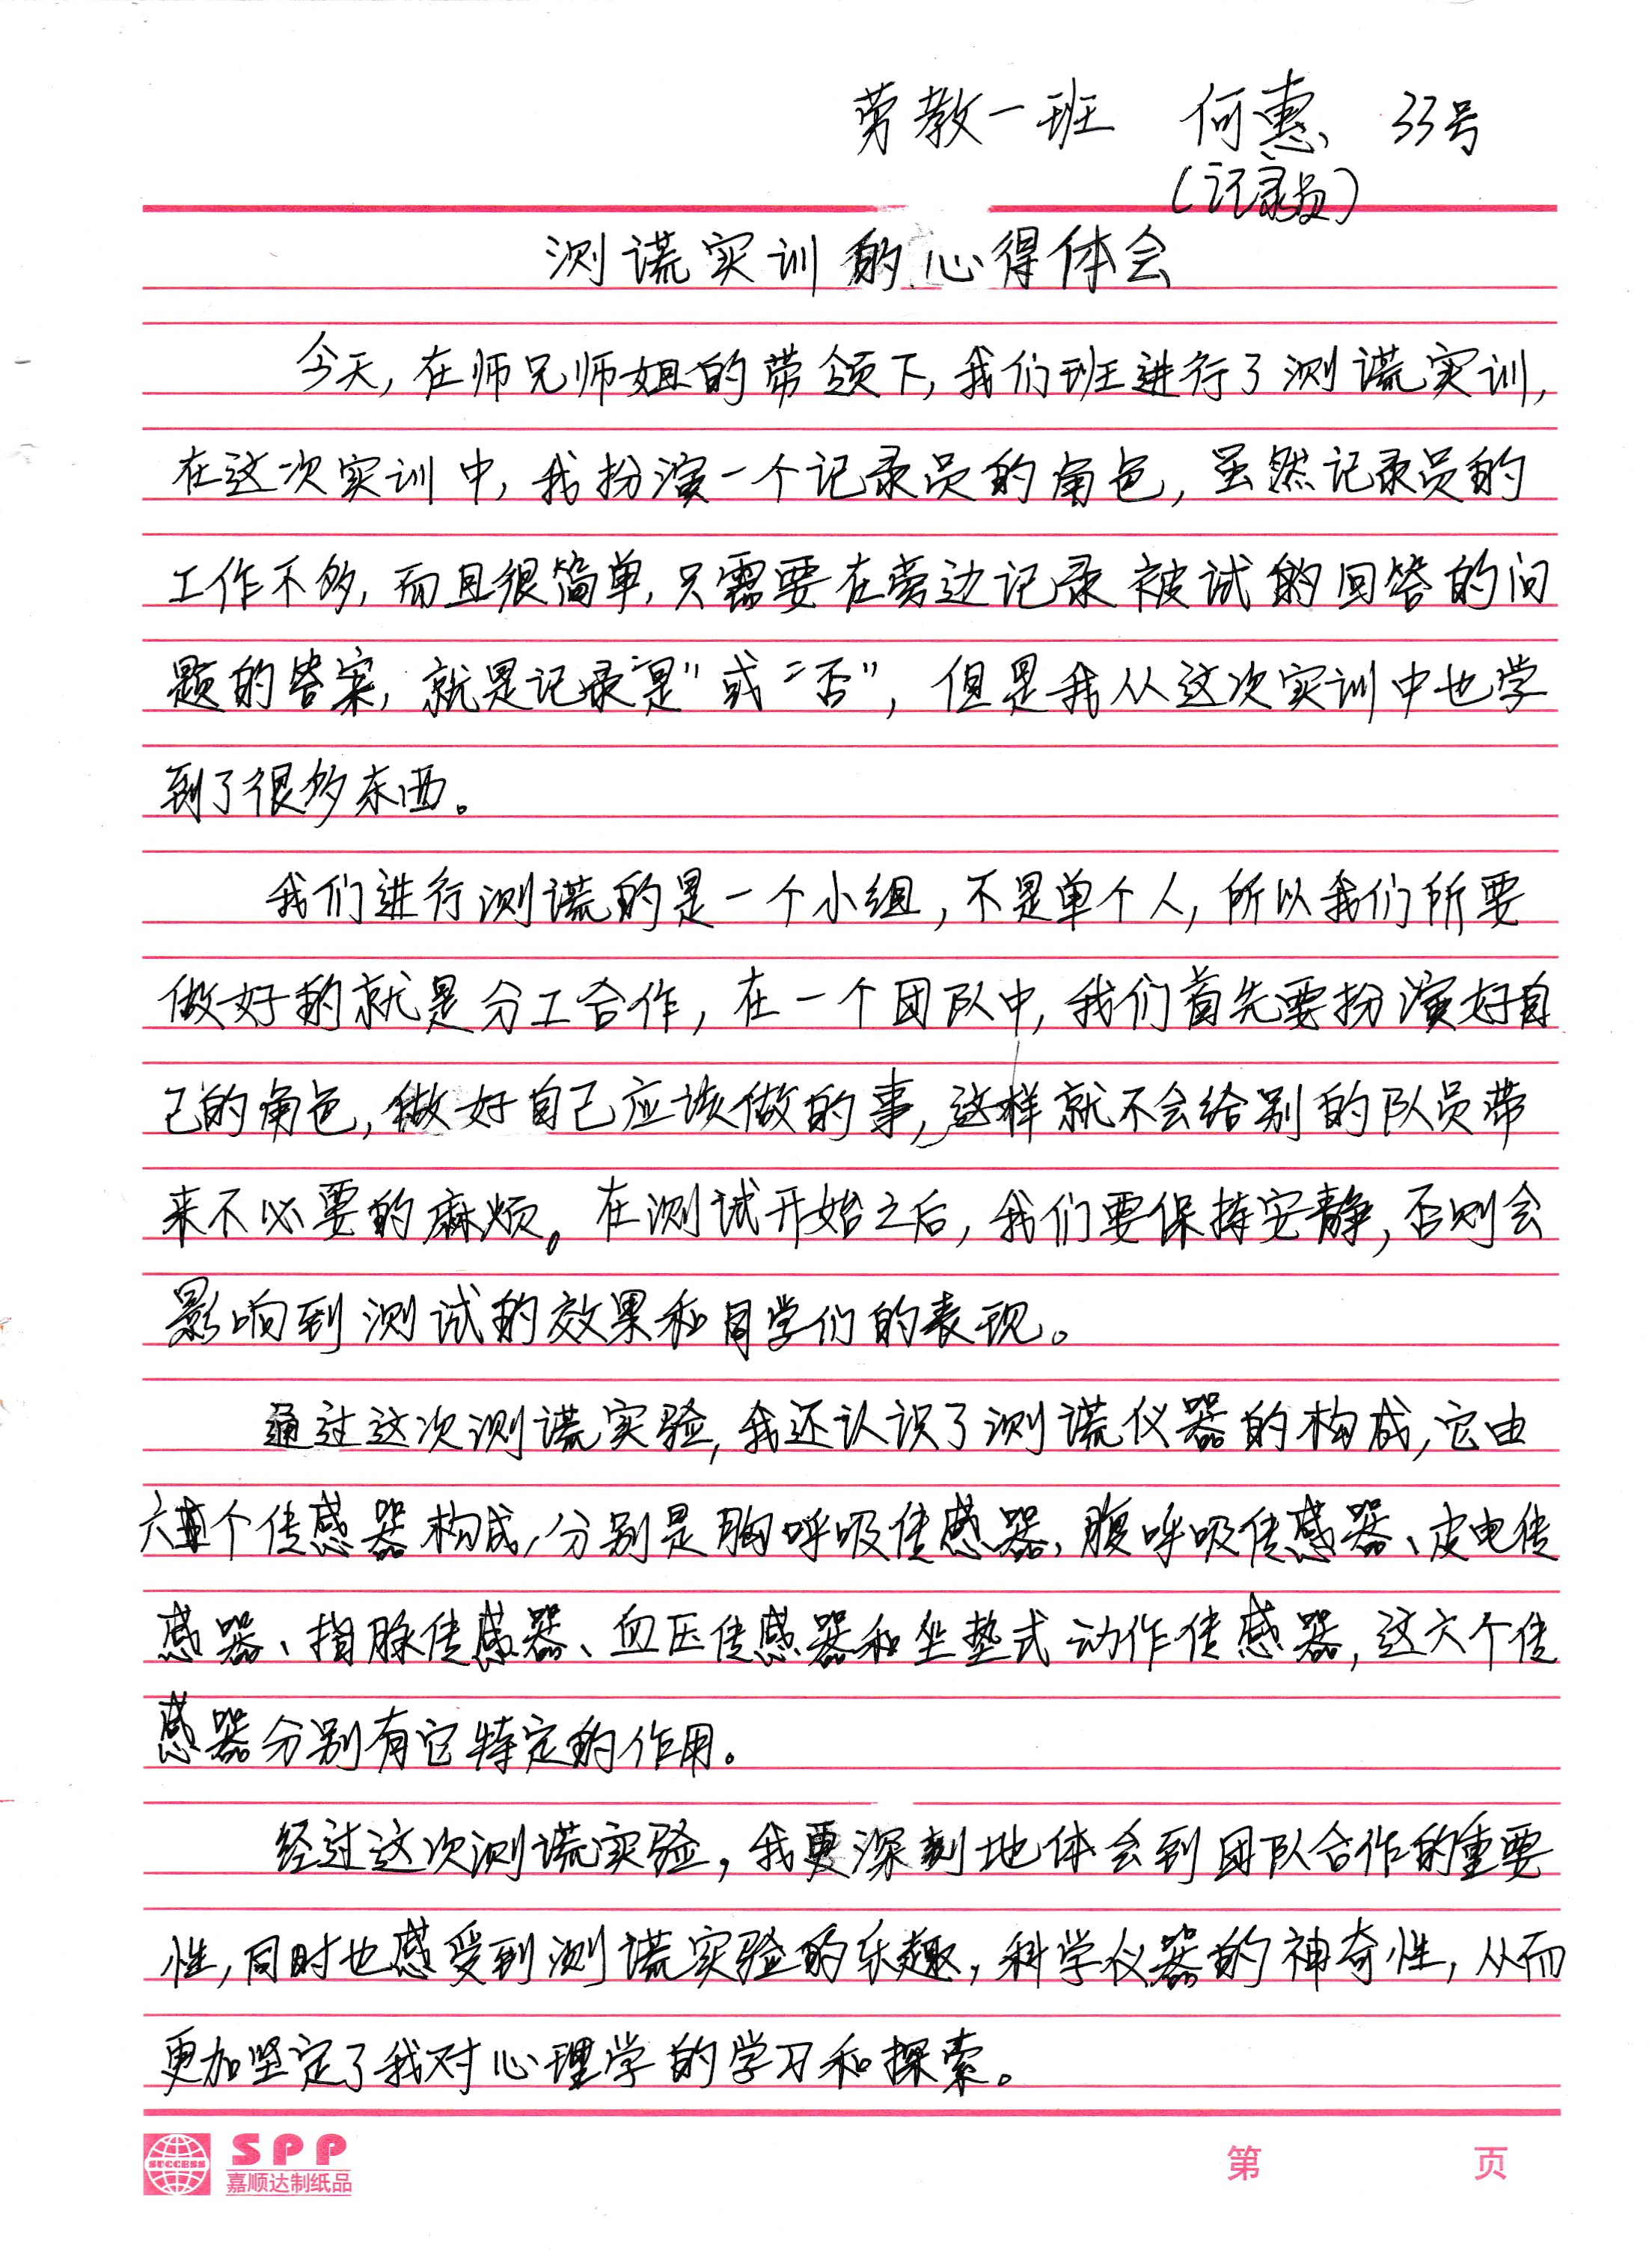 劳教一班 何惠 33号
(记录员)
测谎实训的心得体会
今天,在师兄师姐的带领下,我们班进行了测谎实训,
在这次实训中,我扮演一个记录员的角色,虽然记录员的
工作不多,而且很简单,只需要在旁边记录被试的回答的问
题的答案,就是记录“是”或“否”,但是我从这次实训中也学
到了很多东西。
我们进行测谎的是一个小组,不是单个人,所以我们所要
做好的就是分工合作,在一个团队中,我们首先要扮演好自
己的角色,做好自己应该做的事,这样就不会给别的队员带
来不必要的麻烦。在测试开始之后,我们要保持安静,否则会
影响到测试的效果和同学们的表现。
通过这次测谎实验,我还认识了测谎仪器的构成,它由
六个传感器构成,分别是胸呼吸传感器、腹呼吸传感器、皮电传
感器、指脉传感器、血压传感器和坐垫式动作传感器,这六个传
感器分别有它特定的作用。
经过这次测谎实验,我更深刻地体会到团队合作的重要
性,同时也感受到测谎实验的乐趣,科学仪器的神奇性,从而
更加坚定了我对心理学的学习和探索。
SUCCESS SPP
嘉顺达制纸品
第 页